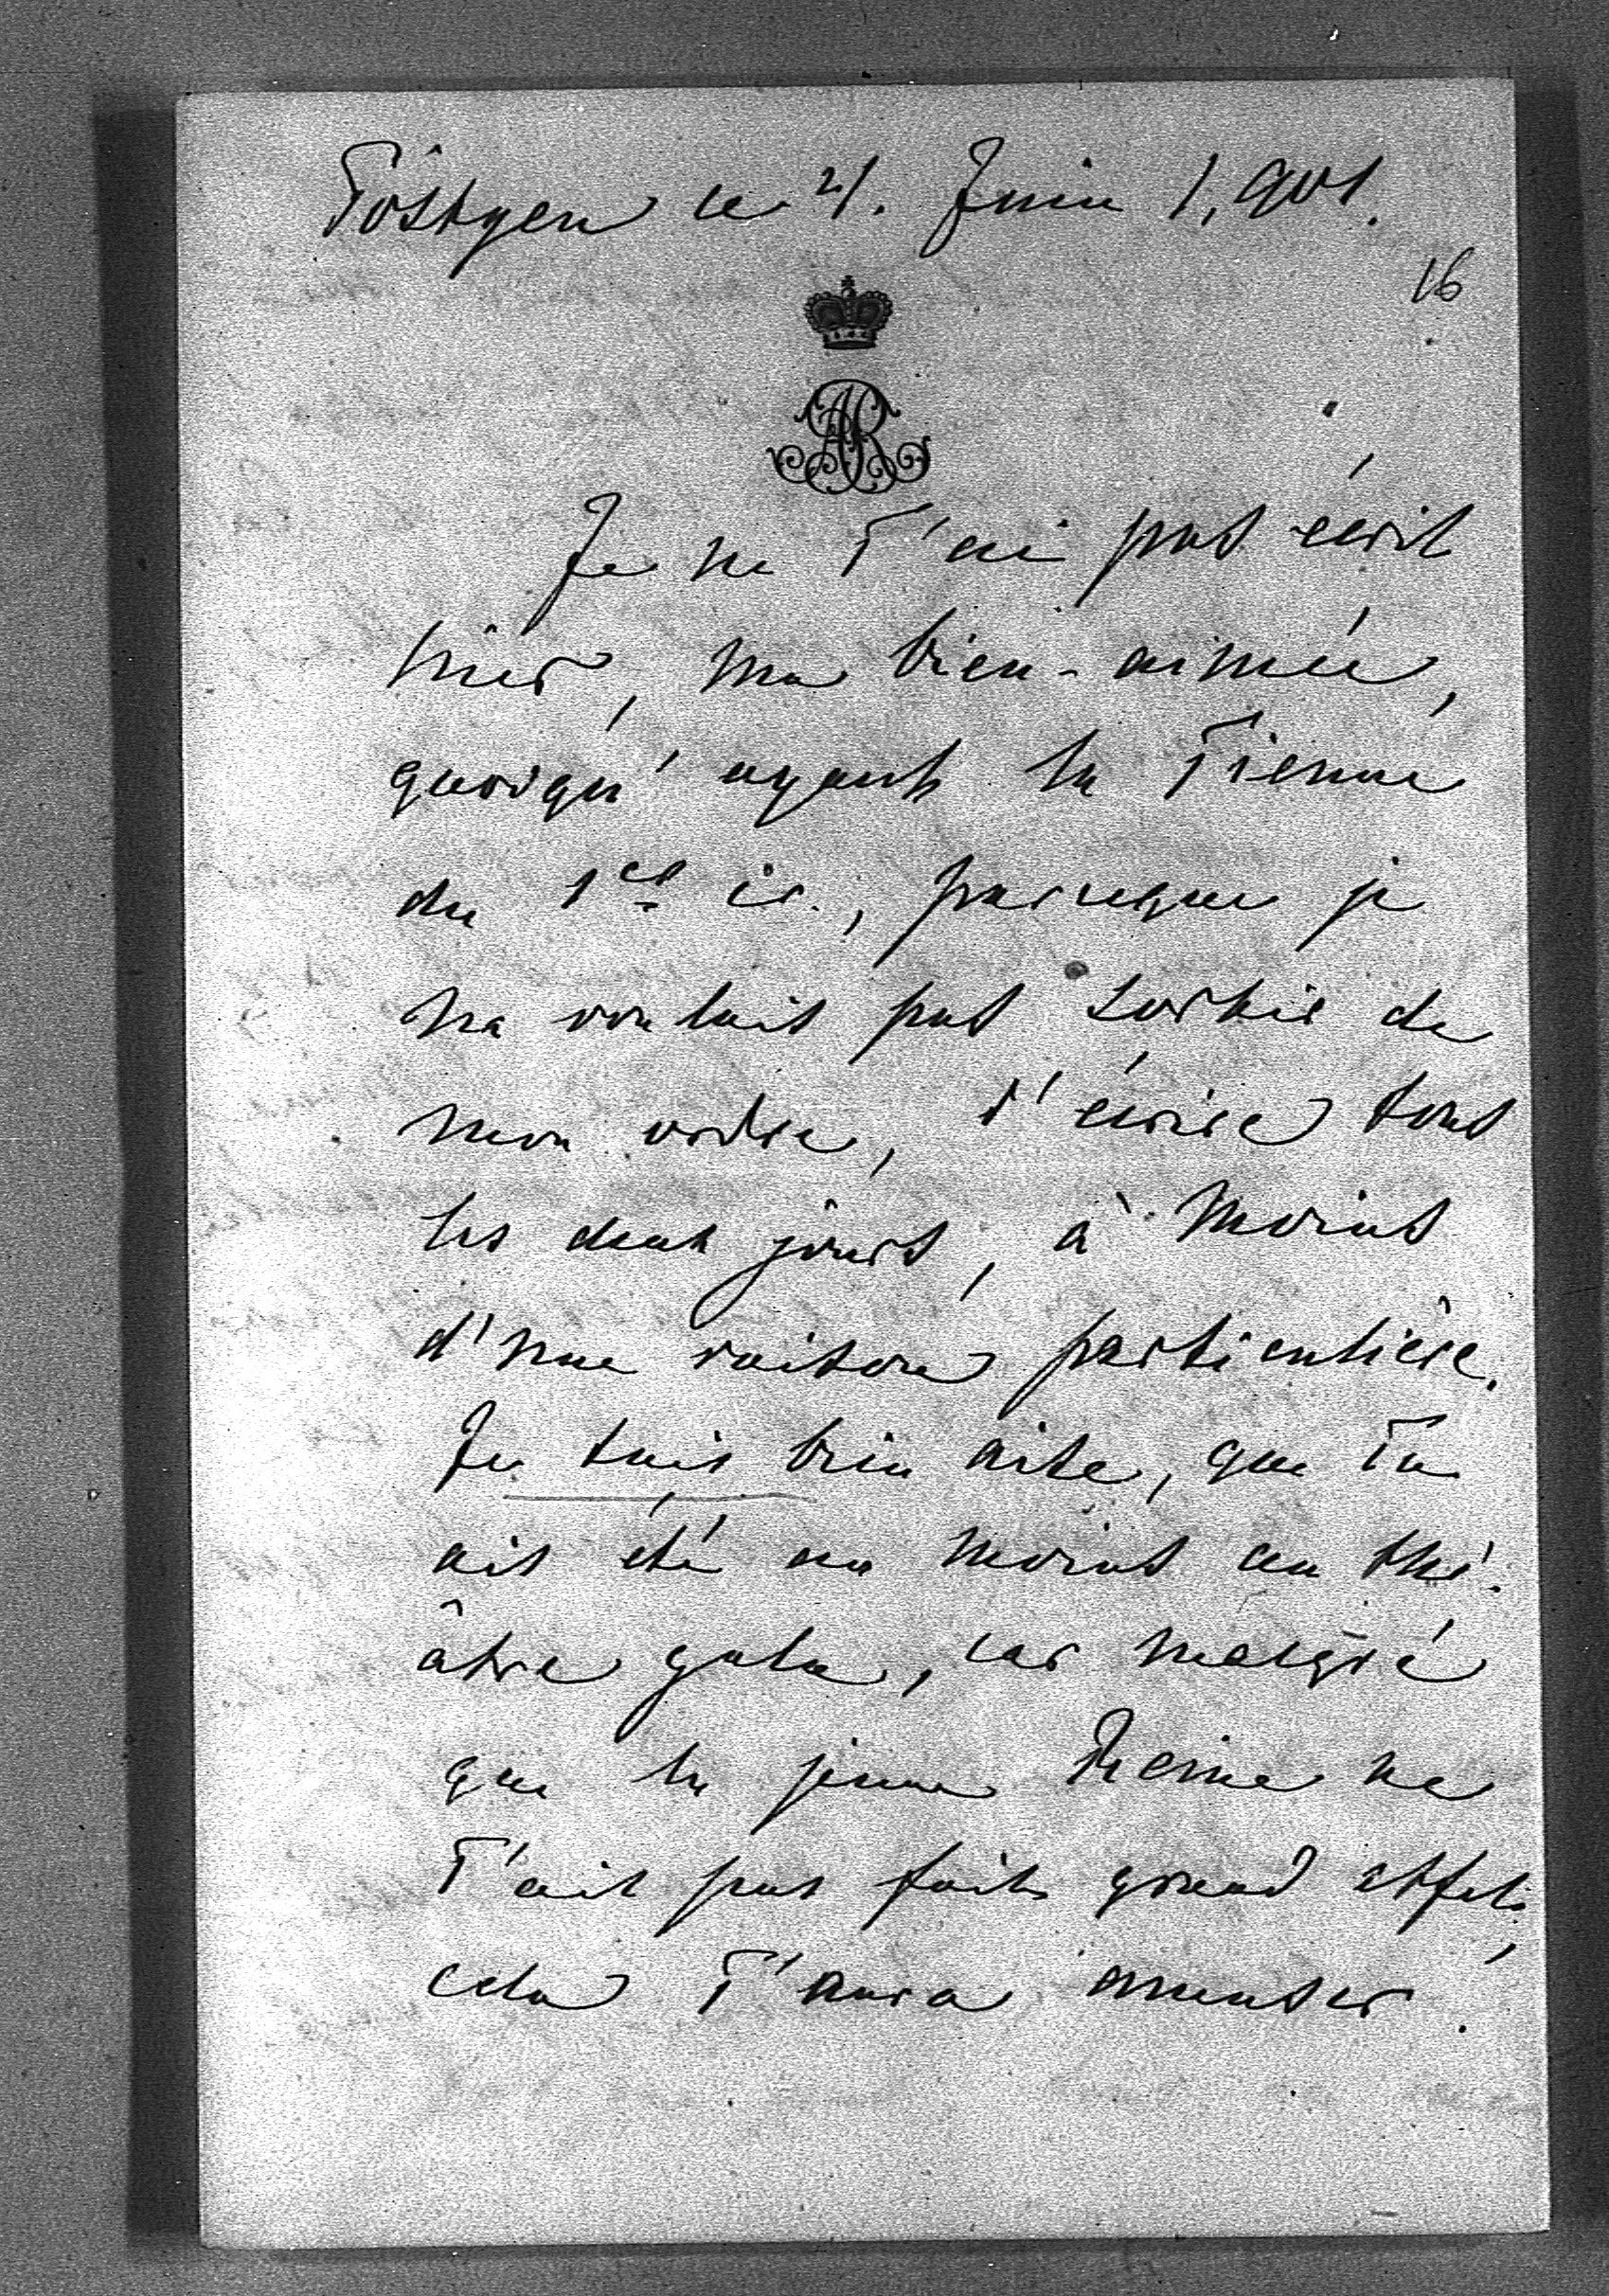 le 21. Juin 1,901.
16
AR
Je ne T'ai pas écrit
hier, ma bien-aimée,
quoiqu' ayant la Tienne
du 1er cr., parceque je
ne voulais pas sortir de
mon ordre, d'écrire tous
les deux jours, à moins
d'une raison particulière.
Je suis bien aise, que Tu
ais été au moins au thé-
âtre gala, car malgré
que la jeune Reine ne
T'ait pas fait grand effet,
cela T'aura amuser.